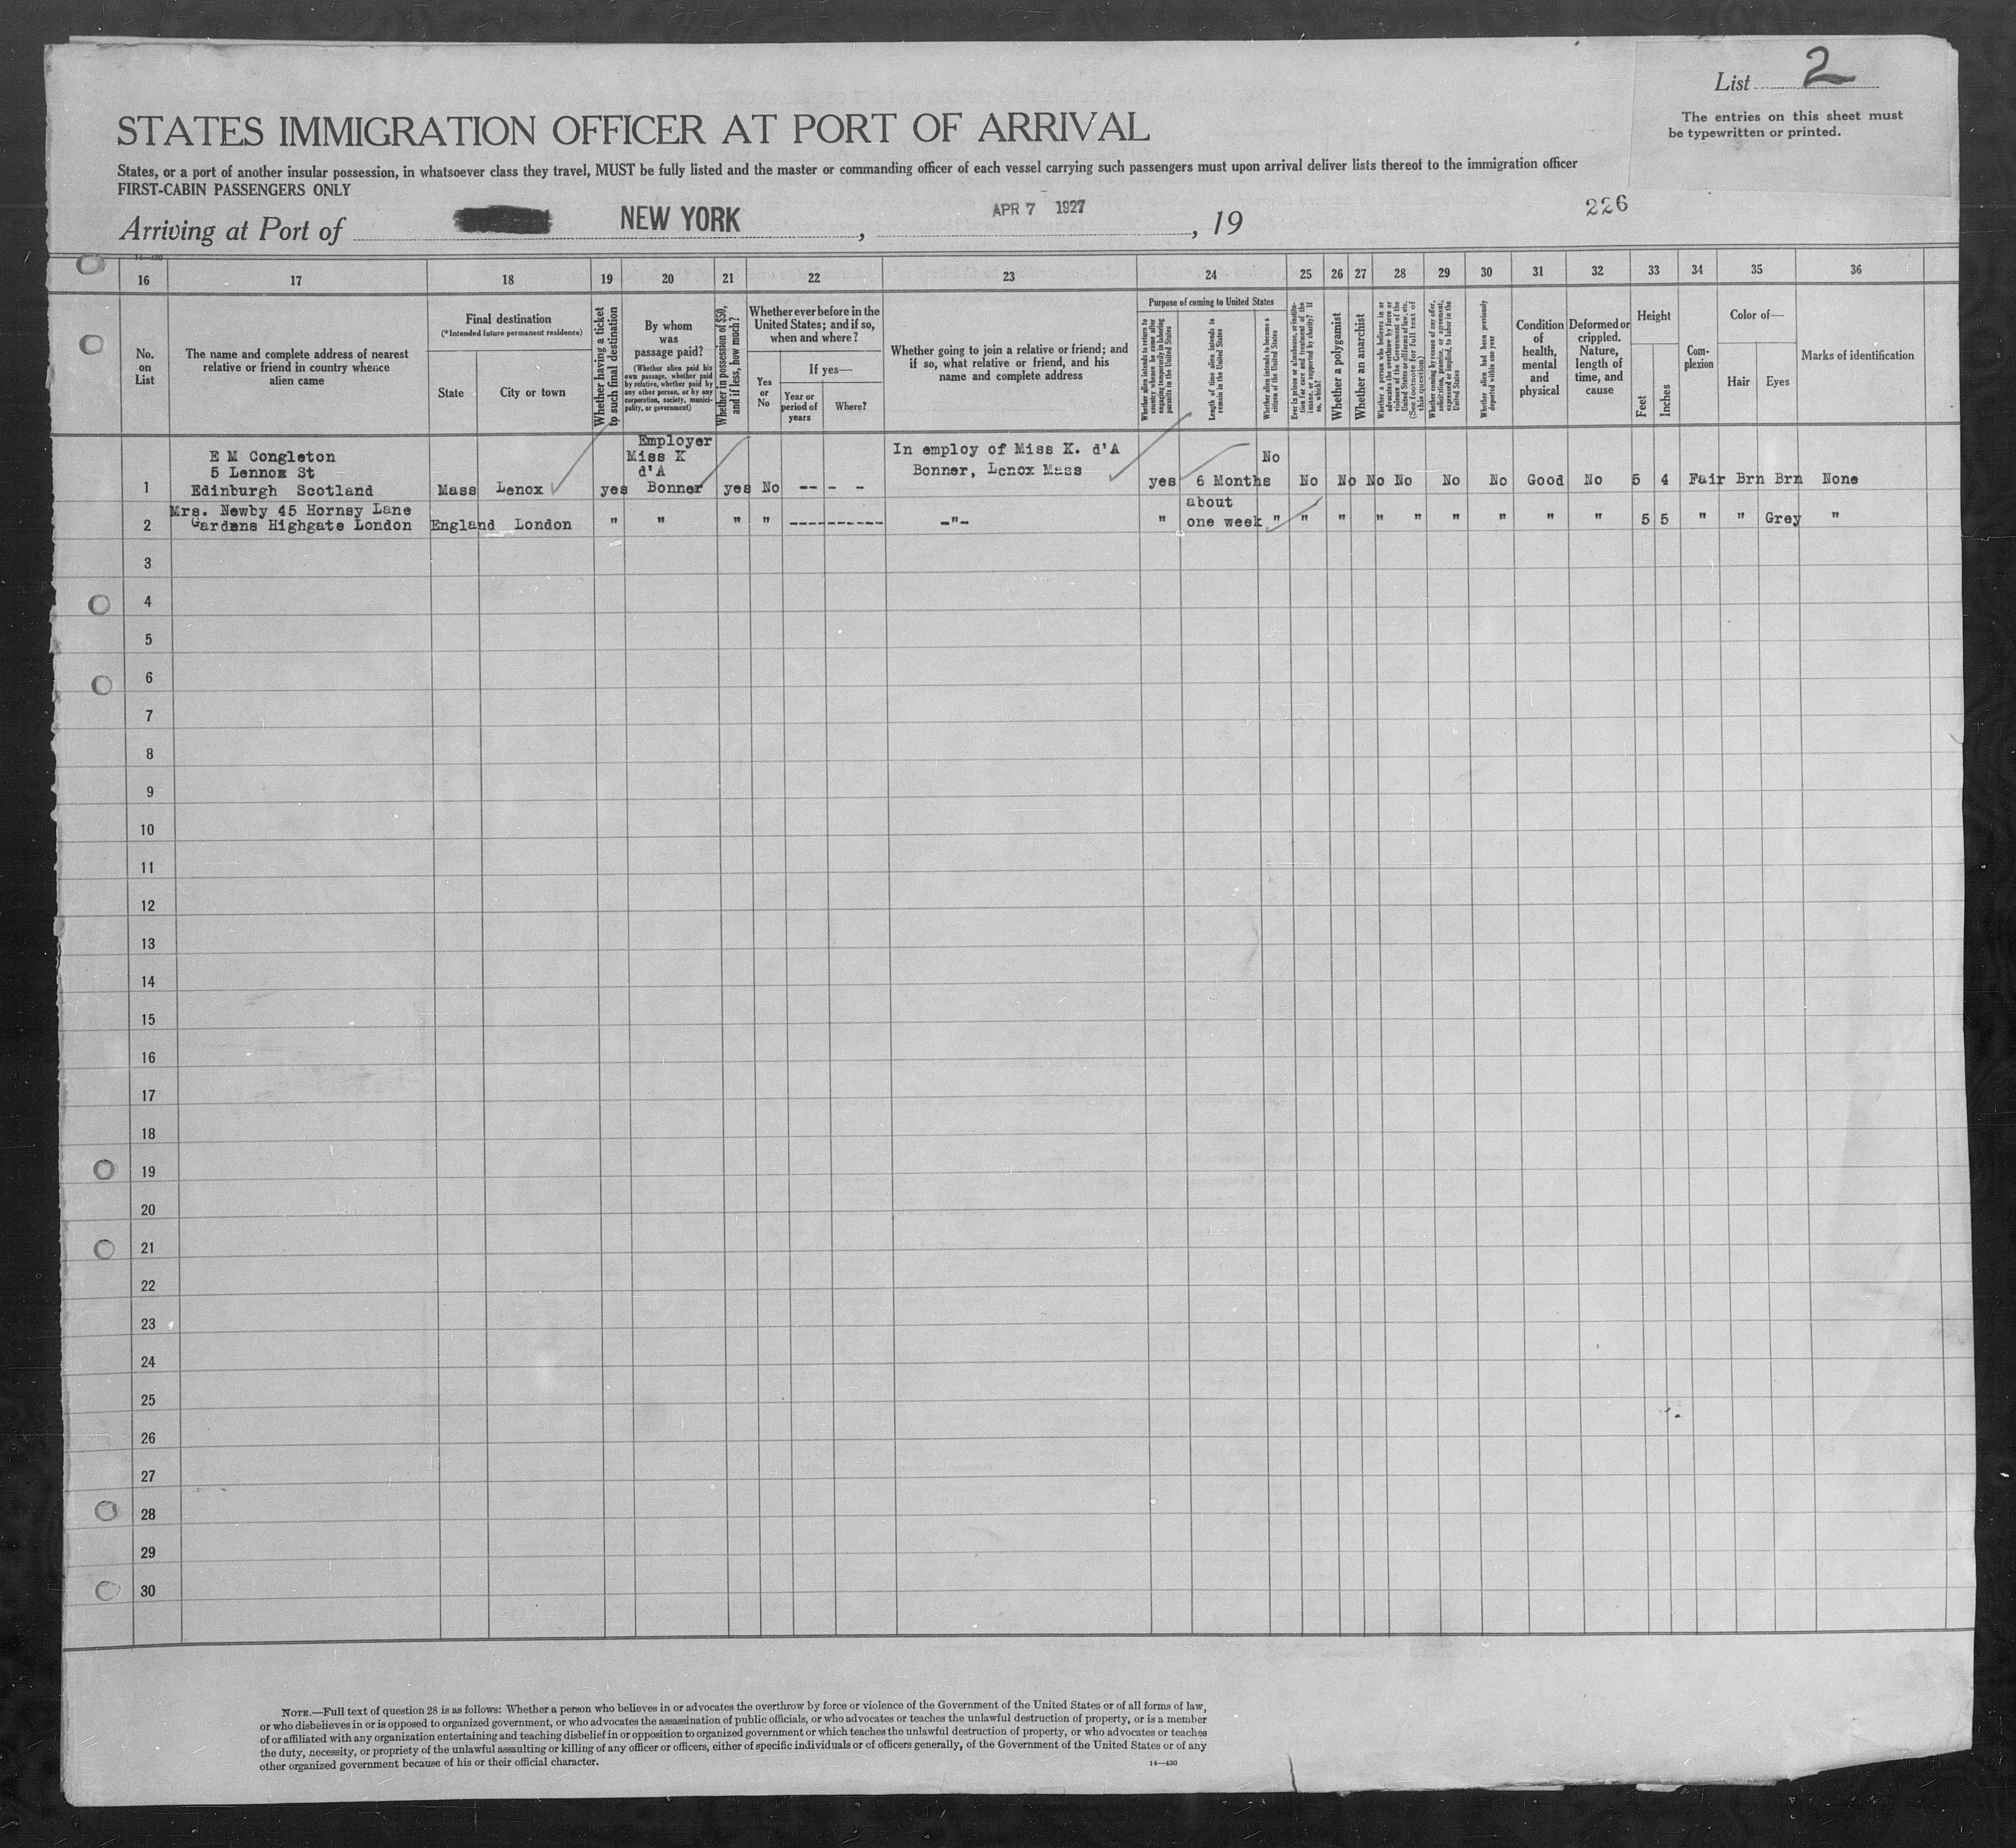 List 2
The entries on this sheet must
be typewritten or printed.
STATES IMMIGRATION OFFICER AT PORT OF ARRIVAL
States, or a port of another insular possession, in whatsoever class they travel, MUST be fully listed and the master or commanding officer of each vessel carrying such passengers must upon arrival deliver lists thereof to the immigration officer
FIRST-CABIN PASSENGERS ONLY
Arriving at Port of NEW YORK, APR 7 1927, 19
226
14—430
16 17 18 19 20 21 22 23 24 25 26 27 28 29 30 31 32 33 34 35 36
No.
on
List
The name and complete address of nearest
relative or friend in country whence
alien came
Final destination
(*Intended future permanent residence)
State
City or town
Whether having a ticket
to such final destination
By whom
was
passage paid?
(Whether alien paid his
own passage, whether paid
by relative, whether paid by
any other person, or by any
corporation, society, munici-
pality, or government)
Whether in possession of $50,
and if less, how much?
Whether ever before in the
United States; and if so,
when and where?
Yes
or
No
If yes—
Year or
period of
years
Where?
Whether going to join a relative or friend; and
if so, what relative or friend, and his
name and complete address
Purpose of coming to United States
Whether alien intends to return to
country whence he came after
engaging temporarily in laboring
pursuits in the United States
Length of time alien intends to
remain in the United States
Whether alien intends to become a
citizen of the United States
Ever in prison or almshouse, or institu-
tion for care and treatment of the
insane, or supported by charity? If
so, which?
Whether a polygamist
Whether an anarchist
Whether a person who believes in or
advocates the overthrow by force or
violence of the Government of the
United States or all forms of law, etc.
(See footnote for full text of
this question)
Whether coming by reason of any offer,
solicitation, promise, or agreement,
expressed or implied, to labor in the
United States
Whether alien had been previously
deported within one year
Condition
of
health,
mental
and
physical
Deformed or
crippled.
Nature,
length of
time, and
cause
Height
Feet
Inches
Com-
plexion
Color of—
Hair
Eyes
Marks of identification
E M Congleton
5 Lennox St
1 Edinburgh Scotland Mass Lenox yes
Employer
Miss K
d'A
Bonner yes No -- - -
In employ of Miss K. d'A
Bonner, Lenox Mass
yes 6 Months No No No No No No No Good No 5 4 Fair Brn Brn None
Mrs. Newby 45 Hornsy Lane
2 Gardens Highgate London England London " " " " ---------- -"- "
about
one week " " " " " " " " " 5 5 " " Grey "
3
4
5
6
7
8
9
10
11
12
13
14
15
16
17
18
19
20
21
22
23
24
25
26
27
28
29
30
NOTE.—Full text of question 28 is as follows: Whether a person who believes in or advocates the overthrow by force or violence of the Government of the United States or of all forms of law,
or who disbelieves in or is opposed to organized government, or who advocates the assassination of public officials, or who advocates or teaches the unlawful destruction of property, or is a member
of or affiliated with any organization entertaining and teaching disbelief in or opposition to organized government or which teaches the unlawful destruction of property, or who advocates or teaches
the duty, necessity, or propriety of the unlawful assaulting or killing of any officer or officers, either of specific individuals or of officers generally, of the Government of the United States or of any
other organized government because of his or their official character.
14—430